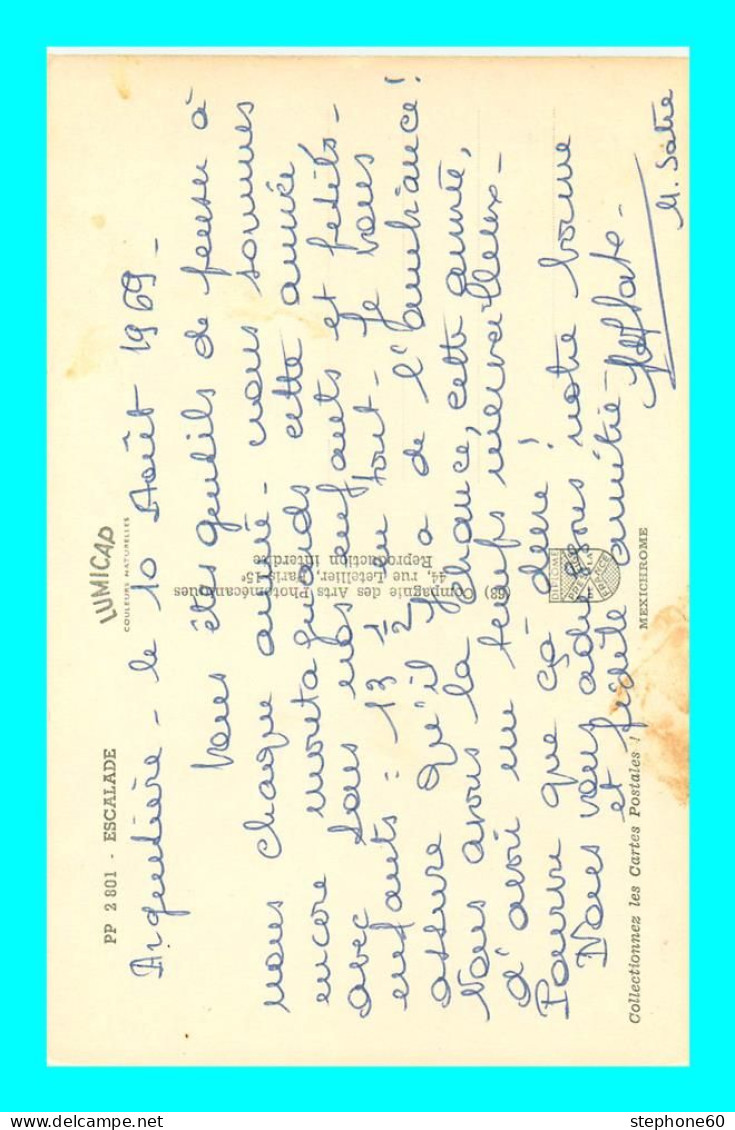 PP 2 801 - ESCALADE
LUMICAP
COULEURS NATURELLES
Argentière - le 10 Août 1969 -
Vous êtes gentils de penser à
nous chaque année - nous sommes
encore montagnards cette année
avec tous nos enfants et petits-
enfants : 13 1/2 au tout - Je vous
assure qu'il y a de l'ambiance !
Nous avons la chance, cette année,
d'avoir un temps merveilleux -
Pourvu que ça dure !
Nous vous adressons notre bonne
et fidèle amitié -
M.
(68) Compagnie des Arts Photomécaniques
44, rue Letellier, Paris-15e
Reproduction interdite
DIPLOME
PRESTIGE
DE LA
FRANCE
MEXICHROME
Collectionnez les Cartes Postales !
stephone60